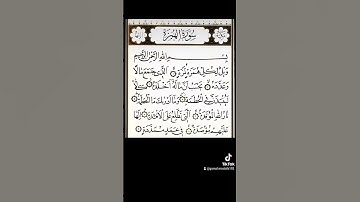 سُورَةُ الْهُمَزَةِ
بِسْمِ اللَّهِ الرَّحْمَٰنِ الرَّحِيمِ
وَيْلٌ لِّكُلِّ هُمَزَةٍ لُّمَزَةٍ ۝ الَّذِي جَمَعَ مَالًا
وَعَدَّدَهُ ۝ يَحْسَبُ أَنَّ مَالَهُ أَخْلَدَهُ ۝ كَلَّا
لَيُنبَذَنَّ فِي الْحُطَمَةِ ۝ وَمَا أَدْرَاكَ مَا الْحُطَمَةُ ۝
نَارُ اللَّهِ الْمُوقَدَةُ ۝ الَّتِي تَطَّلِعُ عَلَى الْأَفْئِدَةِ ۝ إِنَّهَا
عَلَيْهِم مُّؤْصَدَةٌ ۝ فِي عَمَدٍ مُّمَدَّدَةٍ ۝
TikTok